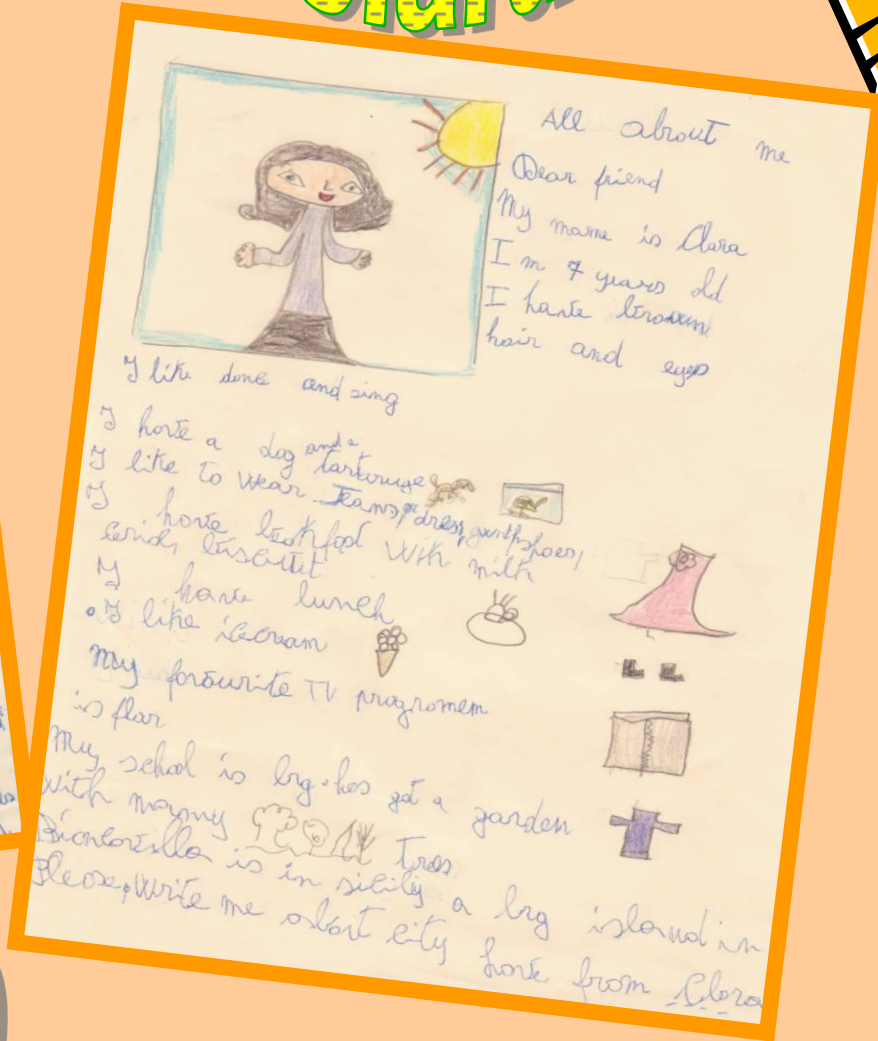 All about me
Dear friend
My mame is Clara
I m 7 years old
I have brown
hair and eyes
I like donc and sing
I have a dog and a tartaruge
I like to wear Jeans, dress, shoes,
I have breakfast With milk
biscuit
I have lunch
I like icecream
My favourite TV programem
is flor
My school is big. has got a garden
With mamy Tres.
is in sicily a big island in
Please, Write me about city love from Clara